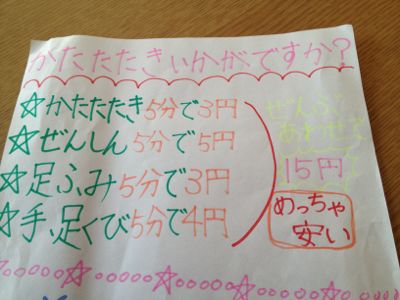 かたたたきいかがですか?
☆かたたたき5分で3円
☆ぜんしん5分で5円
☆足ふみ5分で3円
☆手、足くび5分で4円
ぜんぶ
あわせて
15円
めっちゃ
安い